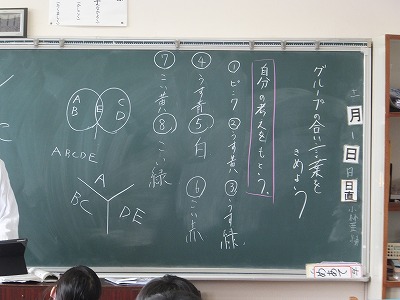 十一月一日
日直
グループの合い言葉を
きめよう
自分の考えをもとう。
①ピンク ②うす黄 ③うす緑
④うす青 ⑤白 ⑥こい赤
⑦こい黄 ⑧こい緑
A
B
E
C
D
ABCDE
A
BC
DE
めあて